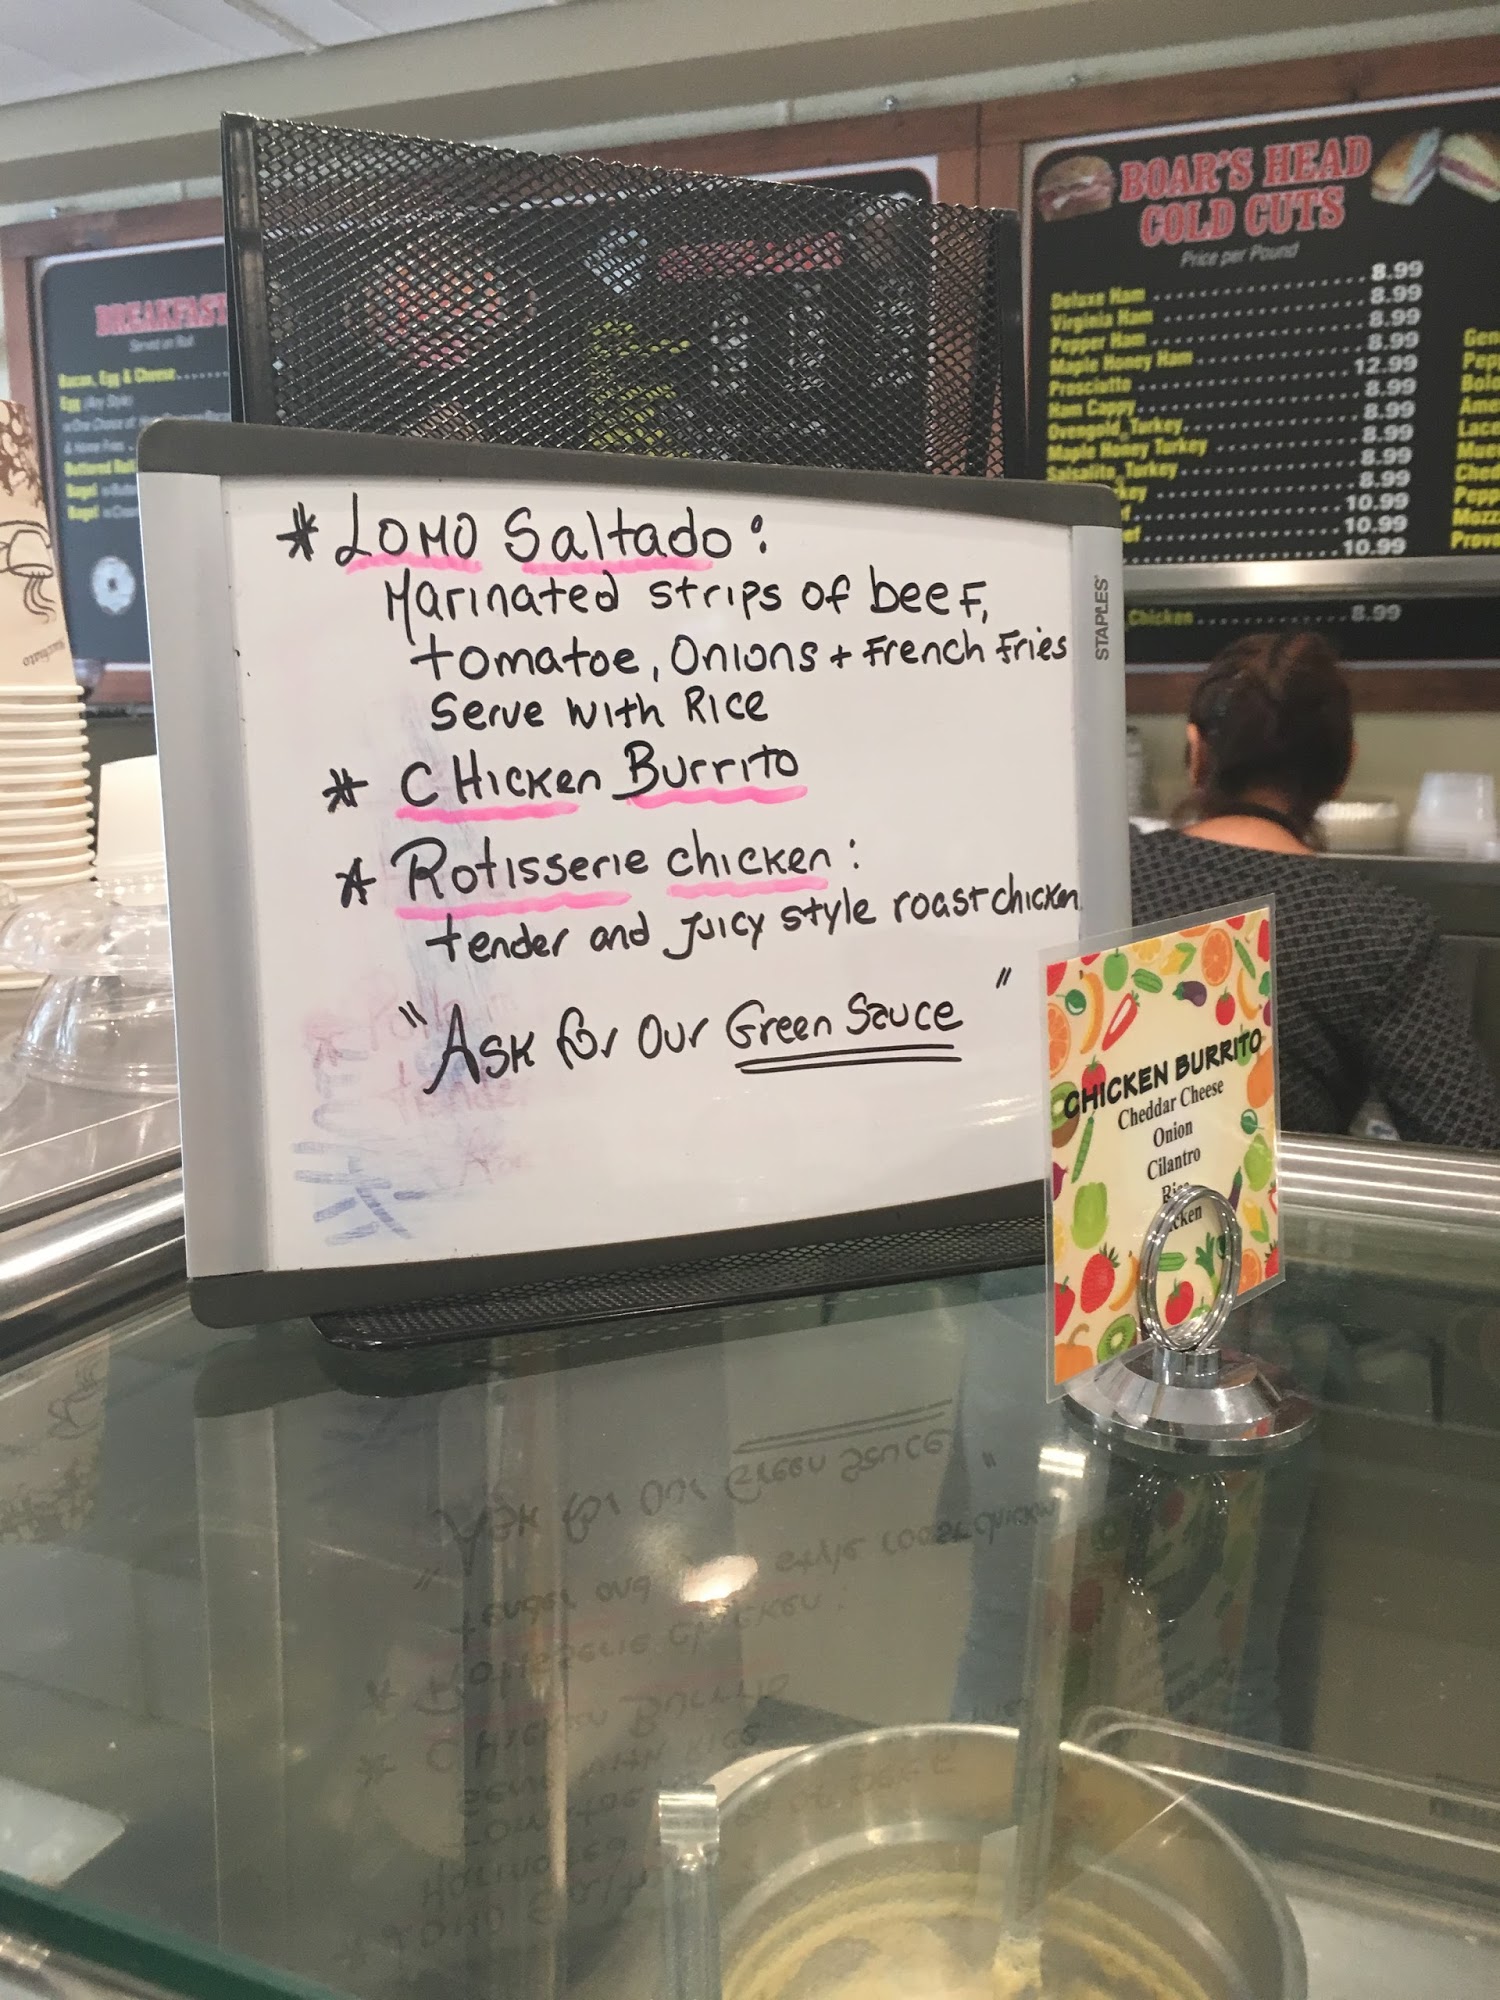 * LOMO Saltado:
Marinated strips of beef,
tomatoe, Onions + French Fries
Serve with Rice
* CHicken Burrito
* Rotisserie chicken:
tender and juicy style roast chicken
"Ask for Our Green Sauce"
STAPLES
CHICKEN BURRITO
Cheddar Cheese
Onion
Cilantro
BREAKFAST
Served on Roll
Bacon, Egg & Cheese
Egg (Any Style)
& Home Fries
Buttered Roll
Bagel
Bagel
BOAR'S HEAD
COLD CUTS
Price per Pound
Deluxe Ham 8.99
Virginia Ham 8.99
Pepper Ham 8.99
Maple Honey Ham 8.99
Prosciutto 12.99
Ham Cappy 8.99
Ovengold Turkey 8.99
Maple Honey Turkey 8.99
Salsalito Turkey 8.99
8.99
10.99
10.99
10.99
Chicken 8.99